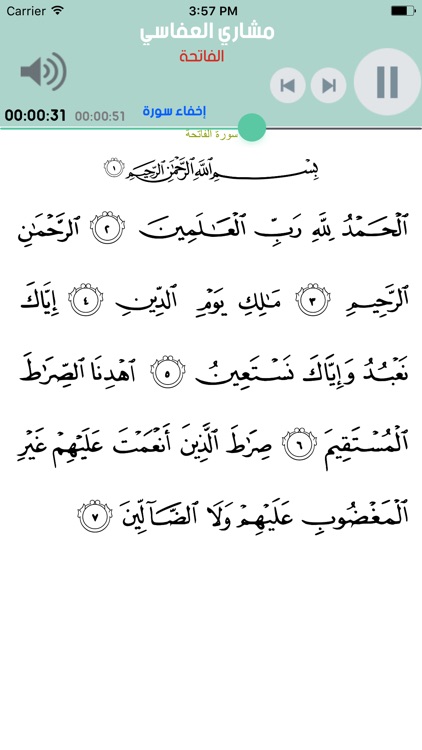 Carrier 3:57 PM
مشاري العفاسي
الفاتحة
00:00:31 00:00:51 إخفاء سورة
سورة الفاتحة
بِسْمِ ٱللَّهِ ٱلرَّحْمَٰنِ ٱلرَّحِيمِ ١
ٱلْحَمْدُ لِلَّهِ رَبِّ ٱلْعَـٰلَمِينَ ٢ ٱلرَّحْمَـٰنِ
ٱلرَّحِيمِ ٣ مَـٰلِكِ يَوْمِ ٱلدِّينِ ٤ إِيَّاكَ
نَعْبُدُ وَإِيَّاكَ نَسْتَعِينُ ٥ ٱهْدِنَا ٱلصِّرَٰطَ
ٱلْمُسْتَقِيمَ ٦ صِرَٰطَ ٱلَّذِينَ أَنْعَمْتَ عَلَيْهِمْ غَيْرِ
ٱلْمَغْضُوبِ عَلَيْهِمْ وَلَا ٱلضَّآلِّينَ ٧